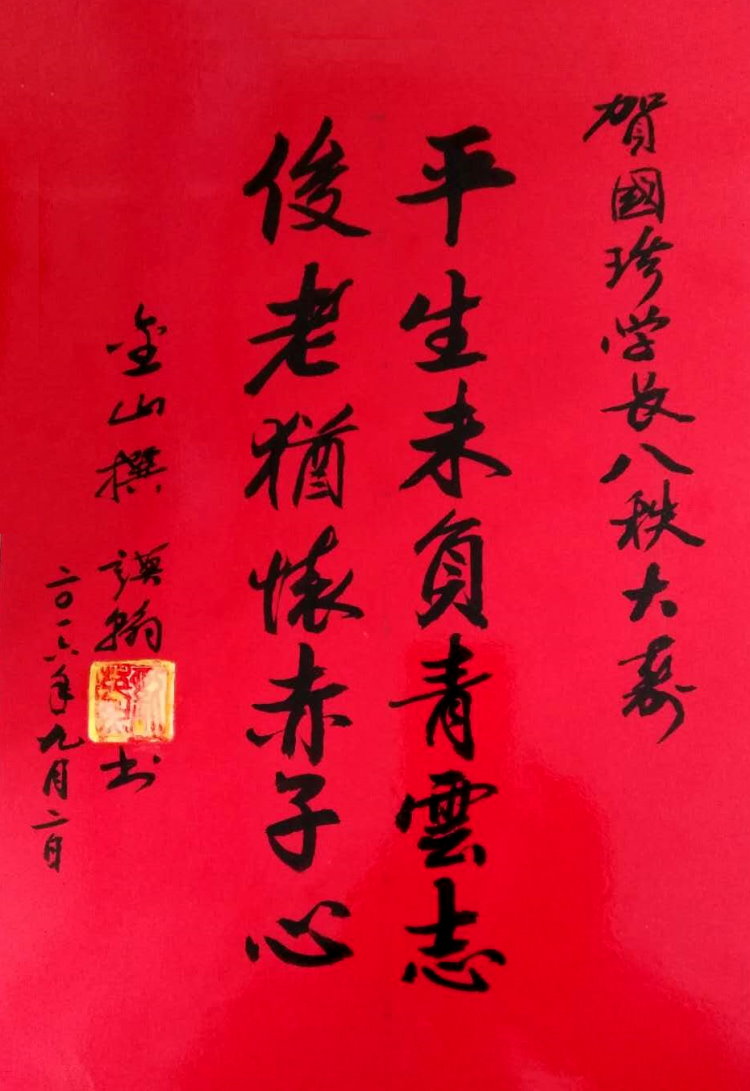 賀國珍学长八秩大寿
平生未負青雲志
俊老猶懷赤子心
金山撰 謨翰书
二〇一六年九月二日